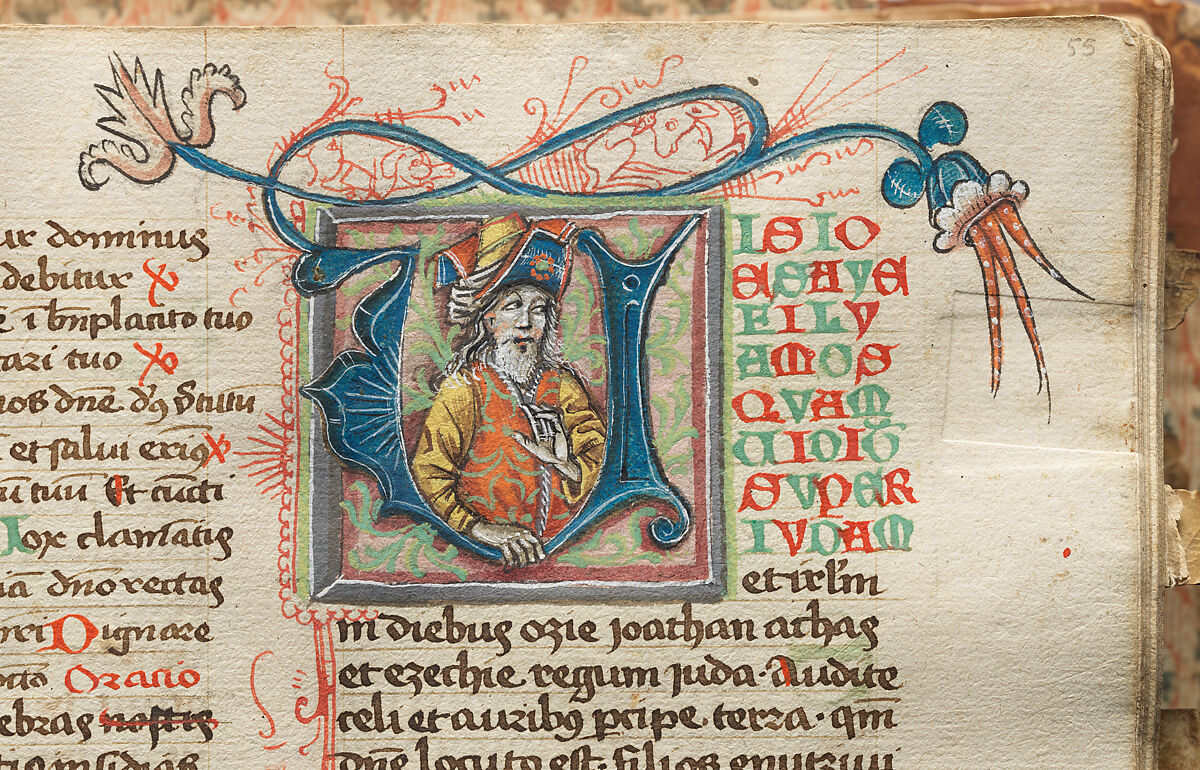 55
dominus
debitur
i bn̄placito tuo
tuo
dn̄e dꝰ
et salui erimꝰ
tuū Et cūcti
Vox clamātis
dn̄o rectas
Dignare
Oracio
ebras nostis
insidias
VISIO
ESAYE
FILV
AMOS
QVAM
VIDIT
SVPER
IVDAM
et irlˈm
in diebus ozie joathan athas
et ezechie regum juda · Audite
celi et auribꝰ ꝑcipe terra · qm̄
dn̄s locutꝰ est · filios enutriui